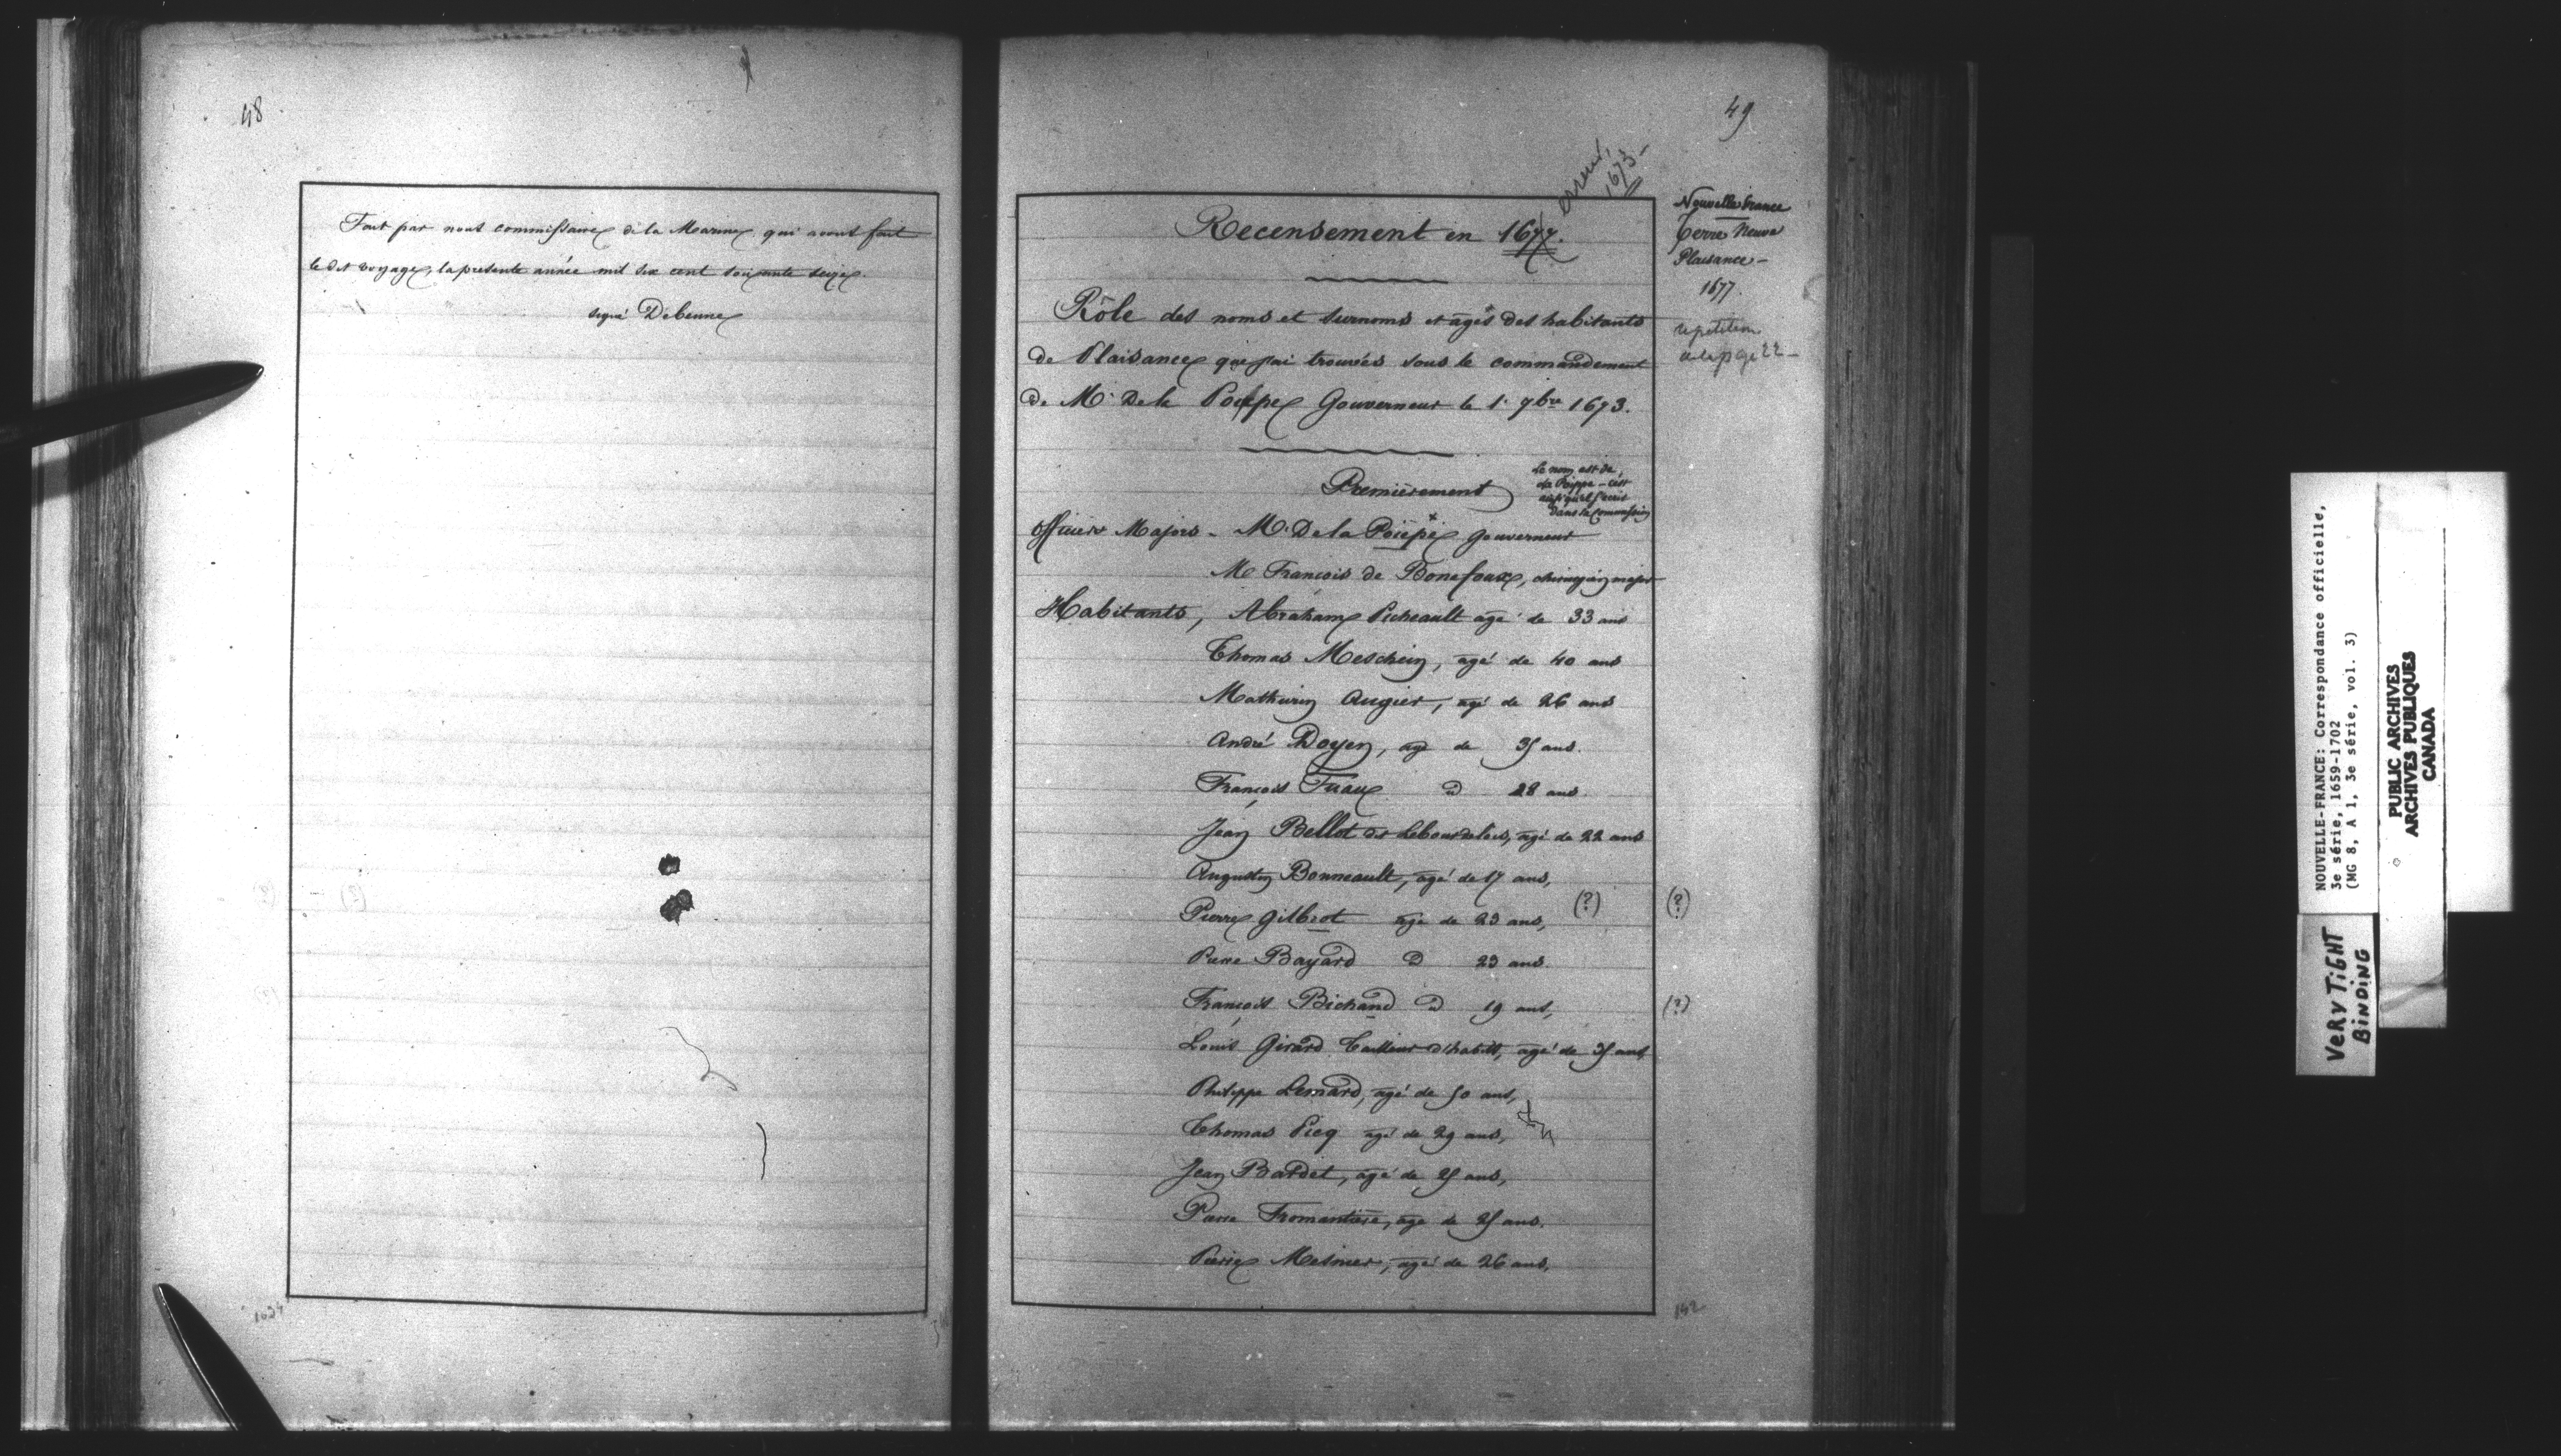 48
Fait par nous commissaire de la Marine qui avons fait
le dit voyage, la presente année mil six cent soixante seize.
signé Debenne
1634
49
erreur,
1673 -
Recensement en 1677.
Nouvelle france
Terre Neuve
Plaisance -
1677.
repetition
a la page 22 -
Rôle des noms et surnoms et ages des habitants
de Plaisance que j'ai trouvées sous le commandement
de Mr. De la Poippe Gouverneur le 1r 9bre 1673.
Premièrement
Le nom est de
la Poippe - c'est
ainsi qu'il s'écrit
dans sa Commission
Officiers Majors - Mr. De la Poiepe Gouverneur
Mr François de Bonefoux, chirurgien major
Habitants, Abraham Picheault agé de 33 ans
Thomas Meschin, agé de 40 ans
Mathurin Augier, agé de 26 ans
André Doyen, agé de 35 ans.
François Tuaux d 28 ans
Jean Bellot dit Lebourdelais, agé de 22 ans
Augustin Bonneault, agé de 17 ans,
Pierre Gilbrot agé de 23 ans, (?) (?)
Pierre Bayard D 23 ans.
François Bichand d 19 ans, (?)
Louis Girard Tailleur d'habits, agé de 35 ans,
Philippe Lemard, agé de 50 ans,
Thomas Picq agé de 29 ans,
Jean Bardet, agé de 25 ans,
Pierre Fromantière, age de 25 ans.
Pierre Mesnier, agé de 26 ans,
142
NOUVELLE-FRANCE: Correspondance officielle,
3e série, 1659-1702
(MG 8, A 1, 3e série, vol. 3)
PUBLIC ARCHIVES
ARCHIVES PUBLIQUES
CANADA
VERY TIGHT
BINDING